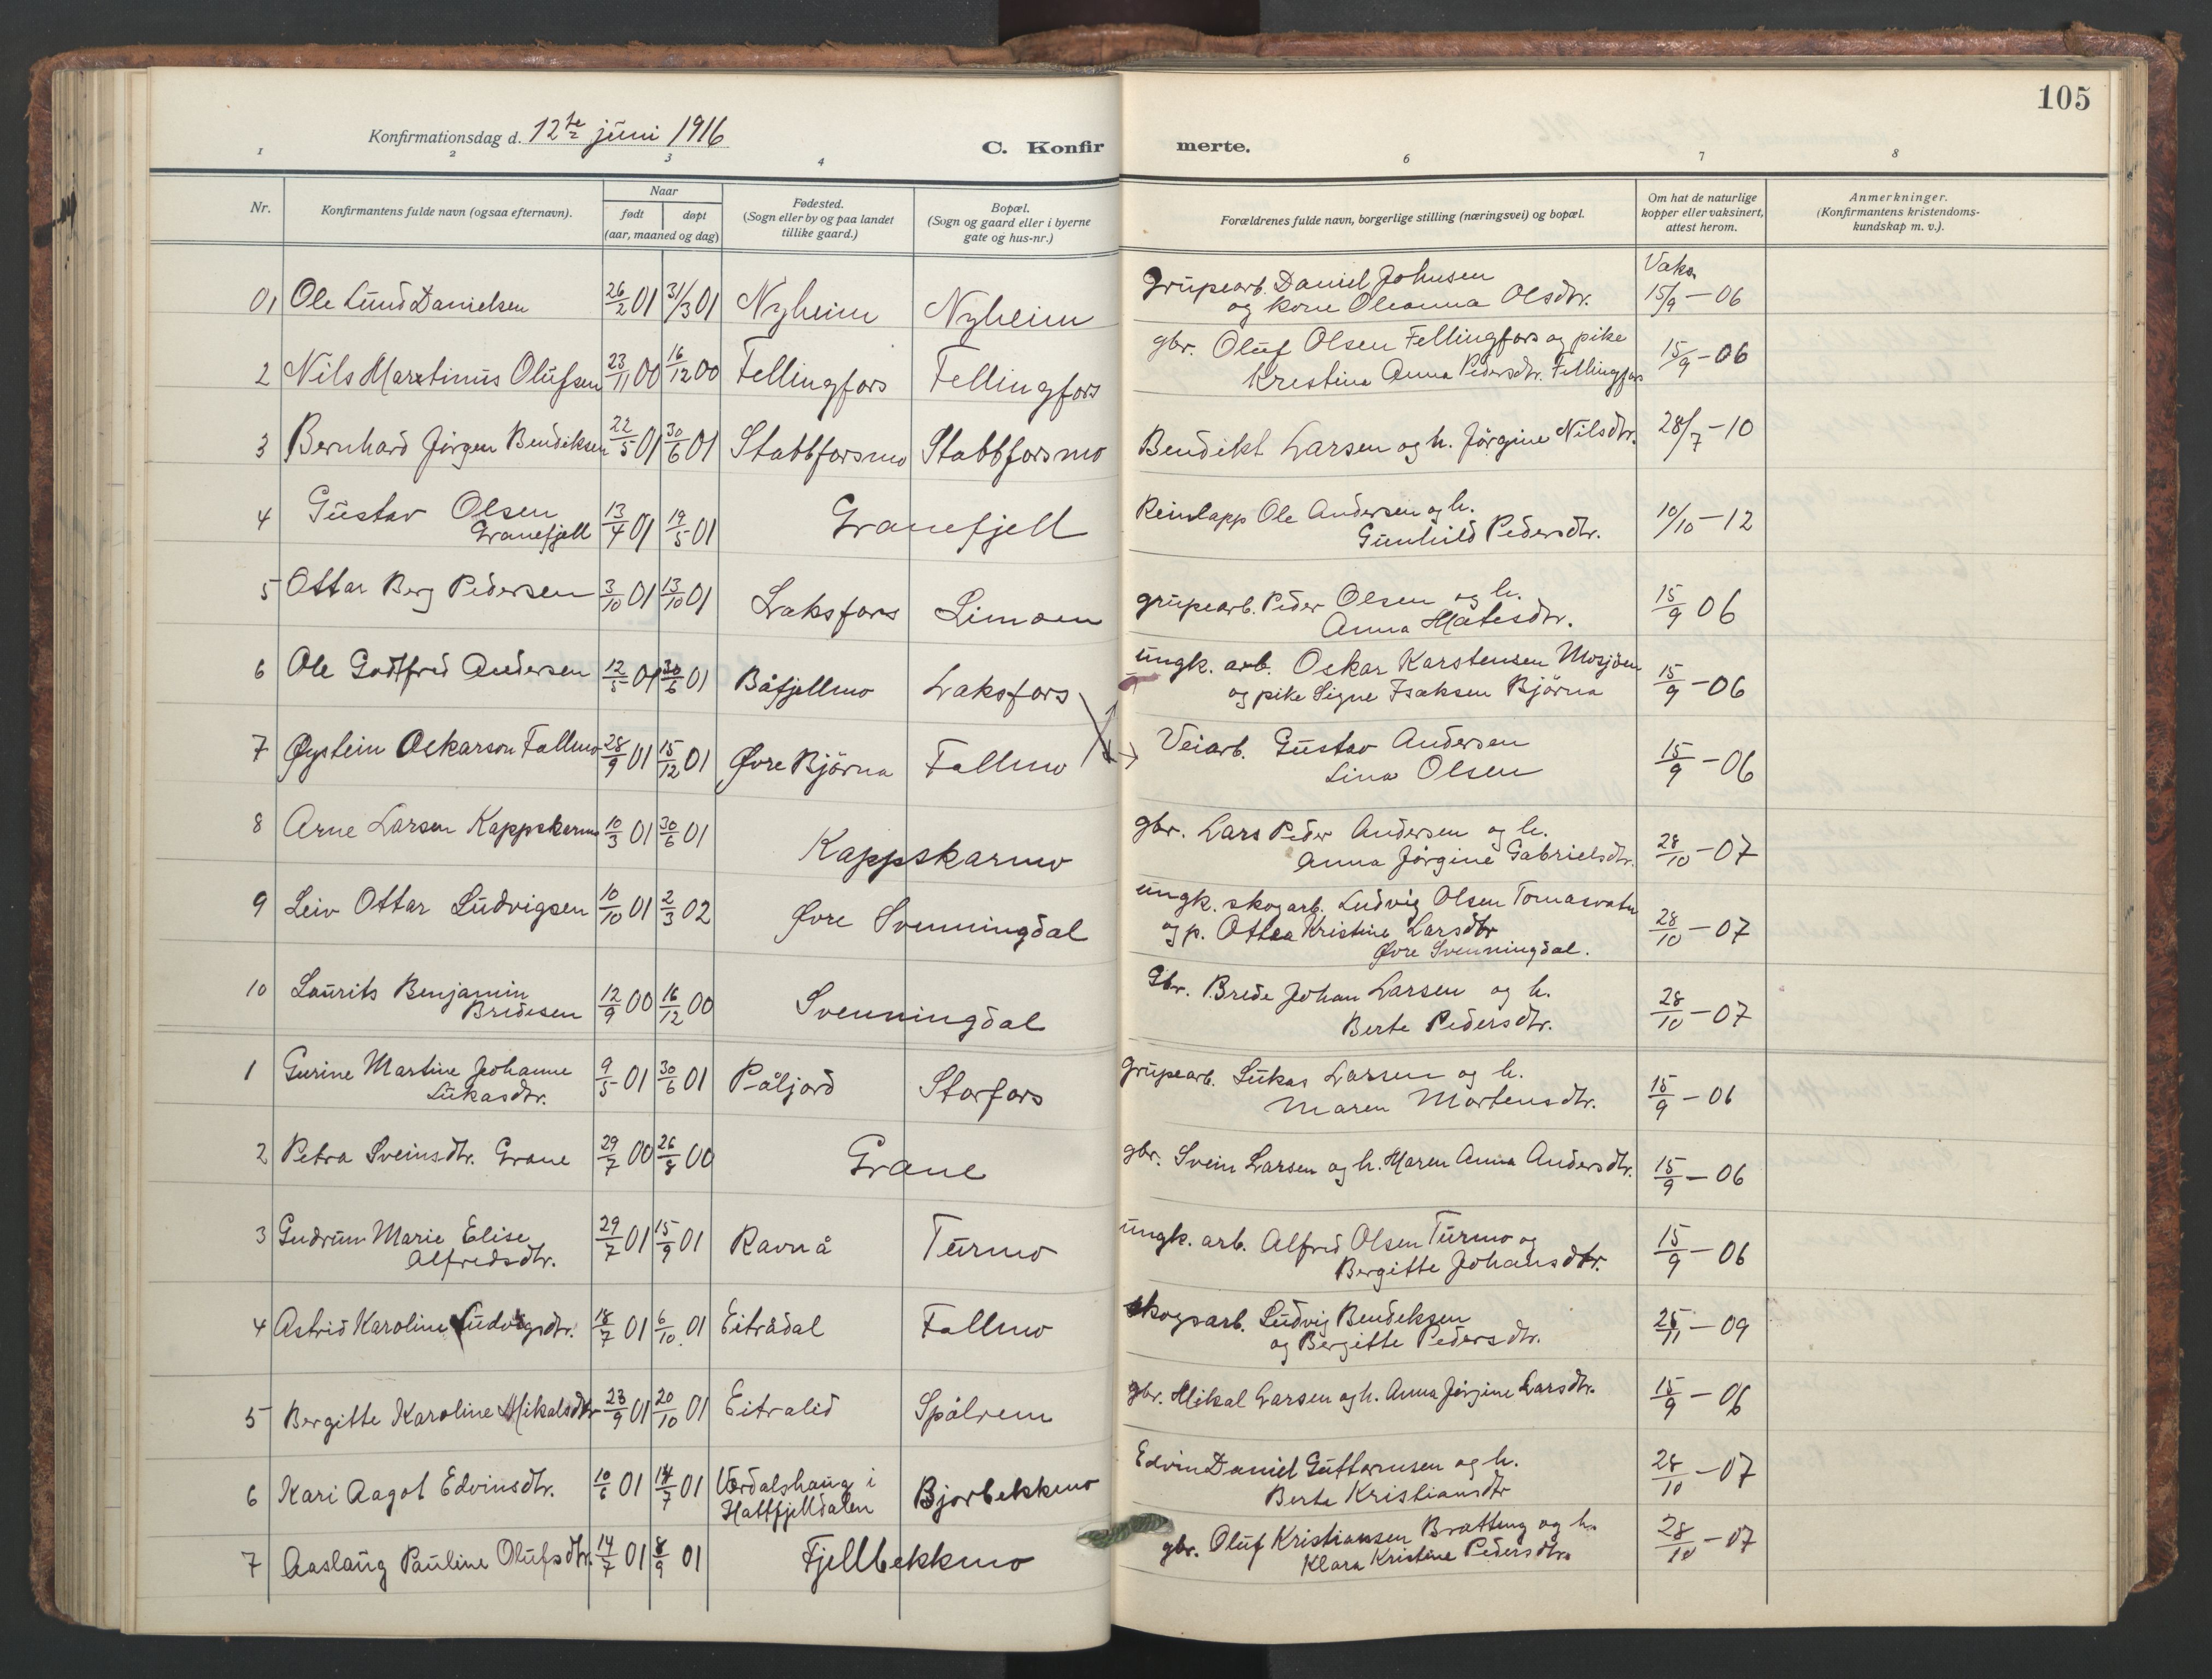 105
Konfirmationsdag d. 12te juni 1916
C. Konfirmerte.
1 2 3 4 6 7 8
Nr.
Konfirmantens fulde navn (ogsaa efternavn).
Naar
født døpt
(aar, maaned og dag)
Fødested.
(Sogn eller by og paa landet
tillike gaard.)
Bopæl.
(Sogn og gaard eller i byerne
gate og hus-nr.)
Forældrenes fulde navn, borgerlige stilling (næringsvei) og bopæl.
Om hat de naturlige
kopper eller vaksinert,
attest herom.
Anmerkninger.
(Konfirmantens kristendoms-
kundskap m. v.).
01 Ole Lund Danielsen 26/2 01 31/3 01 Nyheim Nyheim Grupearb. Daniel Johnsen Vaks.
og kone Oleanna Olsdtr. 15/9 - 06
2 Nils Martinus Olufsen 23/11 00 16/12 00 Fellingfors Fellingfors gbr. Oluf Olsen Fellingfors og pike
Kristina Anna Pedersdtr. Fellingfors 15/9 - 06
3 Bernhard Jörgen Bendiksen 22/5 01 30/6 01 Stabbforsmo Stabbforsmo Bendikt Larsen og h. Jörgine Nilsdtr. 28/7 - 10
4 Gustav Olsen
Granefjell 13/4 01 19/5 01 Granefjell Reinlapp Ole Andersen og h.
Gunhild Pedersdtr. 10/10 - 12
5 Ottar Berg Pedersen 3/10 01 13/10 01 Laksfors Limoen grupearb. Peder Olsen og h.
Anna Matesdtr. 15/9 06
6 Ole Godtfred Andersen 12/5 01 30/6 01 Båfjellmo Laksfors ungk. arb. Oskar Karstensen Mosjöen
og pike Signe Isaksen Björna 15/9 - 06
7 Øystein Oskarson Fallmo 28/9 01 15/12 01 Øvre Björna Fallmo Veiarb. Gustav Andersen
Lina Olsen 15/9 - 06
8 Arne Larsen Kappskarmo 10/3 01 30/6 01 Kappskarmo gbr. Lars Peder Andersen og h.
Anna Jörgine Gabrielsdtr. 28/10 - 07
9 Leiv Ottar Ludvigsen 10/10 01 2/3 02 Øvre Svenningdal ungk. skogarb. Ludvig Olsen Tomasvatn
og p. Ottea Kristine Larsdtr
Øvre Svenningdal. 28/10 - 07
10 Laurits Benjamin
Bredesen 12/9 00 16/12 00 Svenningdal Gbr. Brede Johan Larsen og h.
Berte Pedersdtr. 28/10 - 07
1 Gurine Martine Johanne
Lukasdtr. 9/5 01 30/6 01 Påljord Storfors Grupearb. Lukas Larsen og h.
Maren Mortensdtr. 15/9 - 06
2 Petra Sveinsdtr. Grane 29/7 00 26/8 00 Grane gbr. Svein Larsen og h. Maren Anna Andersdtr. 15/9 - 06
3 Gudrun Marie Elise
Alfredsdtr. 29/7 01 15/9 01 Ravnå Turmo ungk. arb. Alfred Olsen Turmo og
Bergitte Johansdtr. 15/9 - 06
4 Astrid Karoline Ludvigsdtr. 18/7 01 6/10. 01 Eitrådal Fallmo skogsarb. Ludvig Bendeksen
og Bergitte Pedersdtr. 26/11 - 09
5 Bergitte Karoline Mikalsdtr 23/9 01 20/10 01 Eitralid Spålrem gbr. Mikal Larsen og h. Anna Jörgine Larsdtr. 15/9 - 06
6 Kari Aagot Edvinsdtr. 10/6 01 14/7 01 Vordalshaug i
Hattfjelldalen Bjorbekkmo Edvin Daniel Guttormsen og h.
Berte Kristiansdtr 28/10 - 07
7 Aaslaug Pauline Olufsdtr. 14/7 01 8/9 01 Fjellbekkmo gbr. Oluf Kristiansen Bratteng og h.
Klara Kristine Pedersdtr. 28/10 - 07